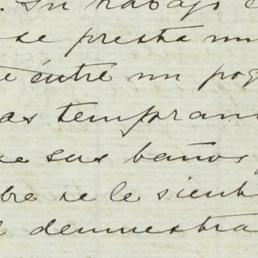 . Su trabajo e
se presta mu
e entre un pog
as tempran
ue sus baños
bre se le sient
demuestra